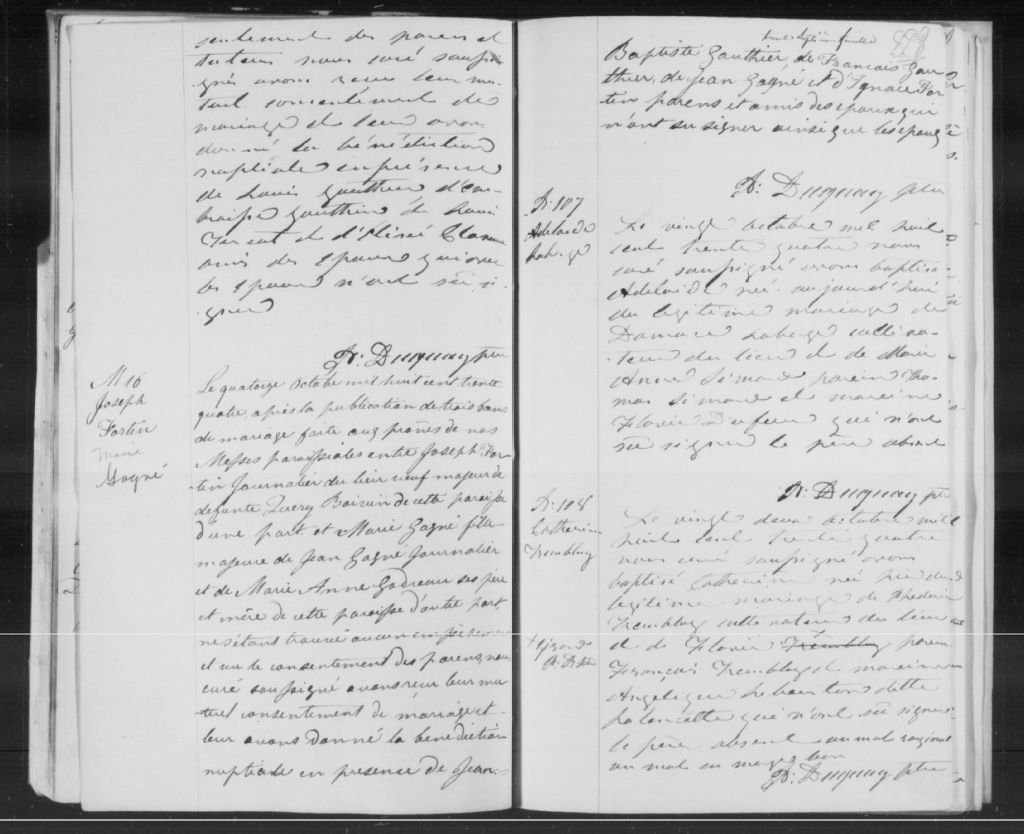 seulement des parens et
tuteurs nous curé soussi-
gnés avons reçu leur mu-
tuel consentement de
mariage et leur avons
donné la bénédiction
nuptiale en présence
de Louis Gauthier d'Am-
broise Gauthier de Louis
et d'Elisée
amis des epoux qui avec
les epoux n'ont sû si-
gner
Fr: Duguay ptre
M 16
Joseph
Fortin
Marie
Gagné
Le quatorze Octobre mil huit cent trente
quatre, après la publication de trois bans
de mariage faite aux prônes de nos
Messes paroissiales entre Joseph For-
tin Journalier du lieu veuf majeur de
defunte Boivin de cette paroisse
d'une part, et Marie Gagné fille
majeure de Jean Gagné Journalier
et de Marie Anne Godreau ses père
et mère de cette paroisse d'autre part,
ne s'étant trouvé aucun empêchement
et vu le consentement des parens, nous
curé soussigné avons reçu leur mu-
tuel consentement de mariage et
leur avons donné la bénédiction
nuptiale en presence de Jean-
Baptiste Gauthier, de François Gau-
thier, de Jean Gagné et d'Ignace For-
tin parens et amis des epoux qui
n'ont su signer ainsi que les epoux
Fr: Duguay ptre
B: 107
Adelaide
Laberge
Le vingt Octobre mil huit
cent trente quatre nous
curé soussigné avons baptisé
Adelaide née aujourd'hui
du legitime mariage de
Damace Laberge culti-
teur du lieu et de Marie
Anne Simard parein Tho-
mas Simard et mareine
Flavie Dufour qui n'ont
sû signer le père absent
Fr: Duguay ptre
B: 108
Catherine
Tremblay
Le vingt deux Octobre mil
huit cent trente quatre
nous curé soussigné avons
baptisé Catherine née hier du
legitime mariage de
Tremblay cultivateur du lieu
et de Flavie Tremblay parein
François Tremblay et mareine
Angelique
qui n'ont sû signer
le père absent un mot rayé nul
un mot en marge bon
Fr: Duguay ptre
+ Girard